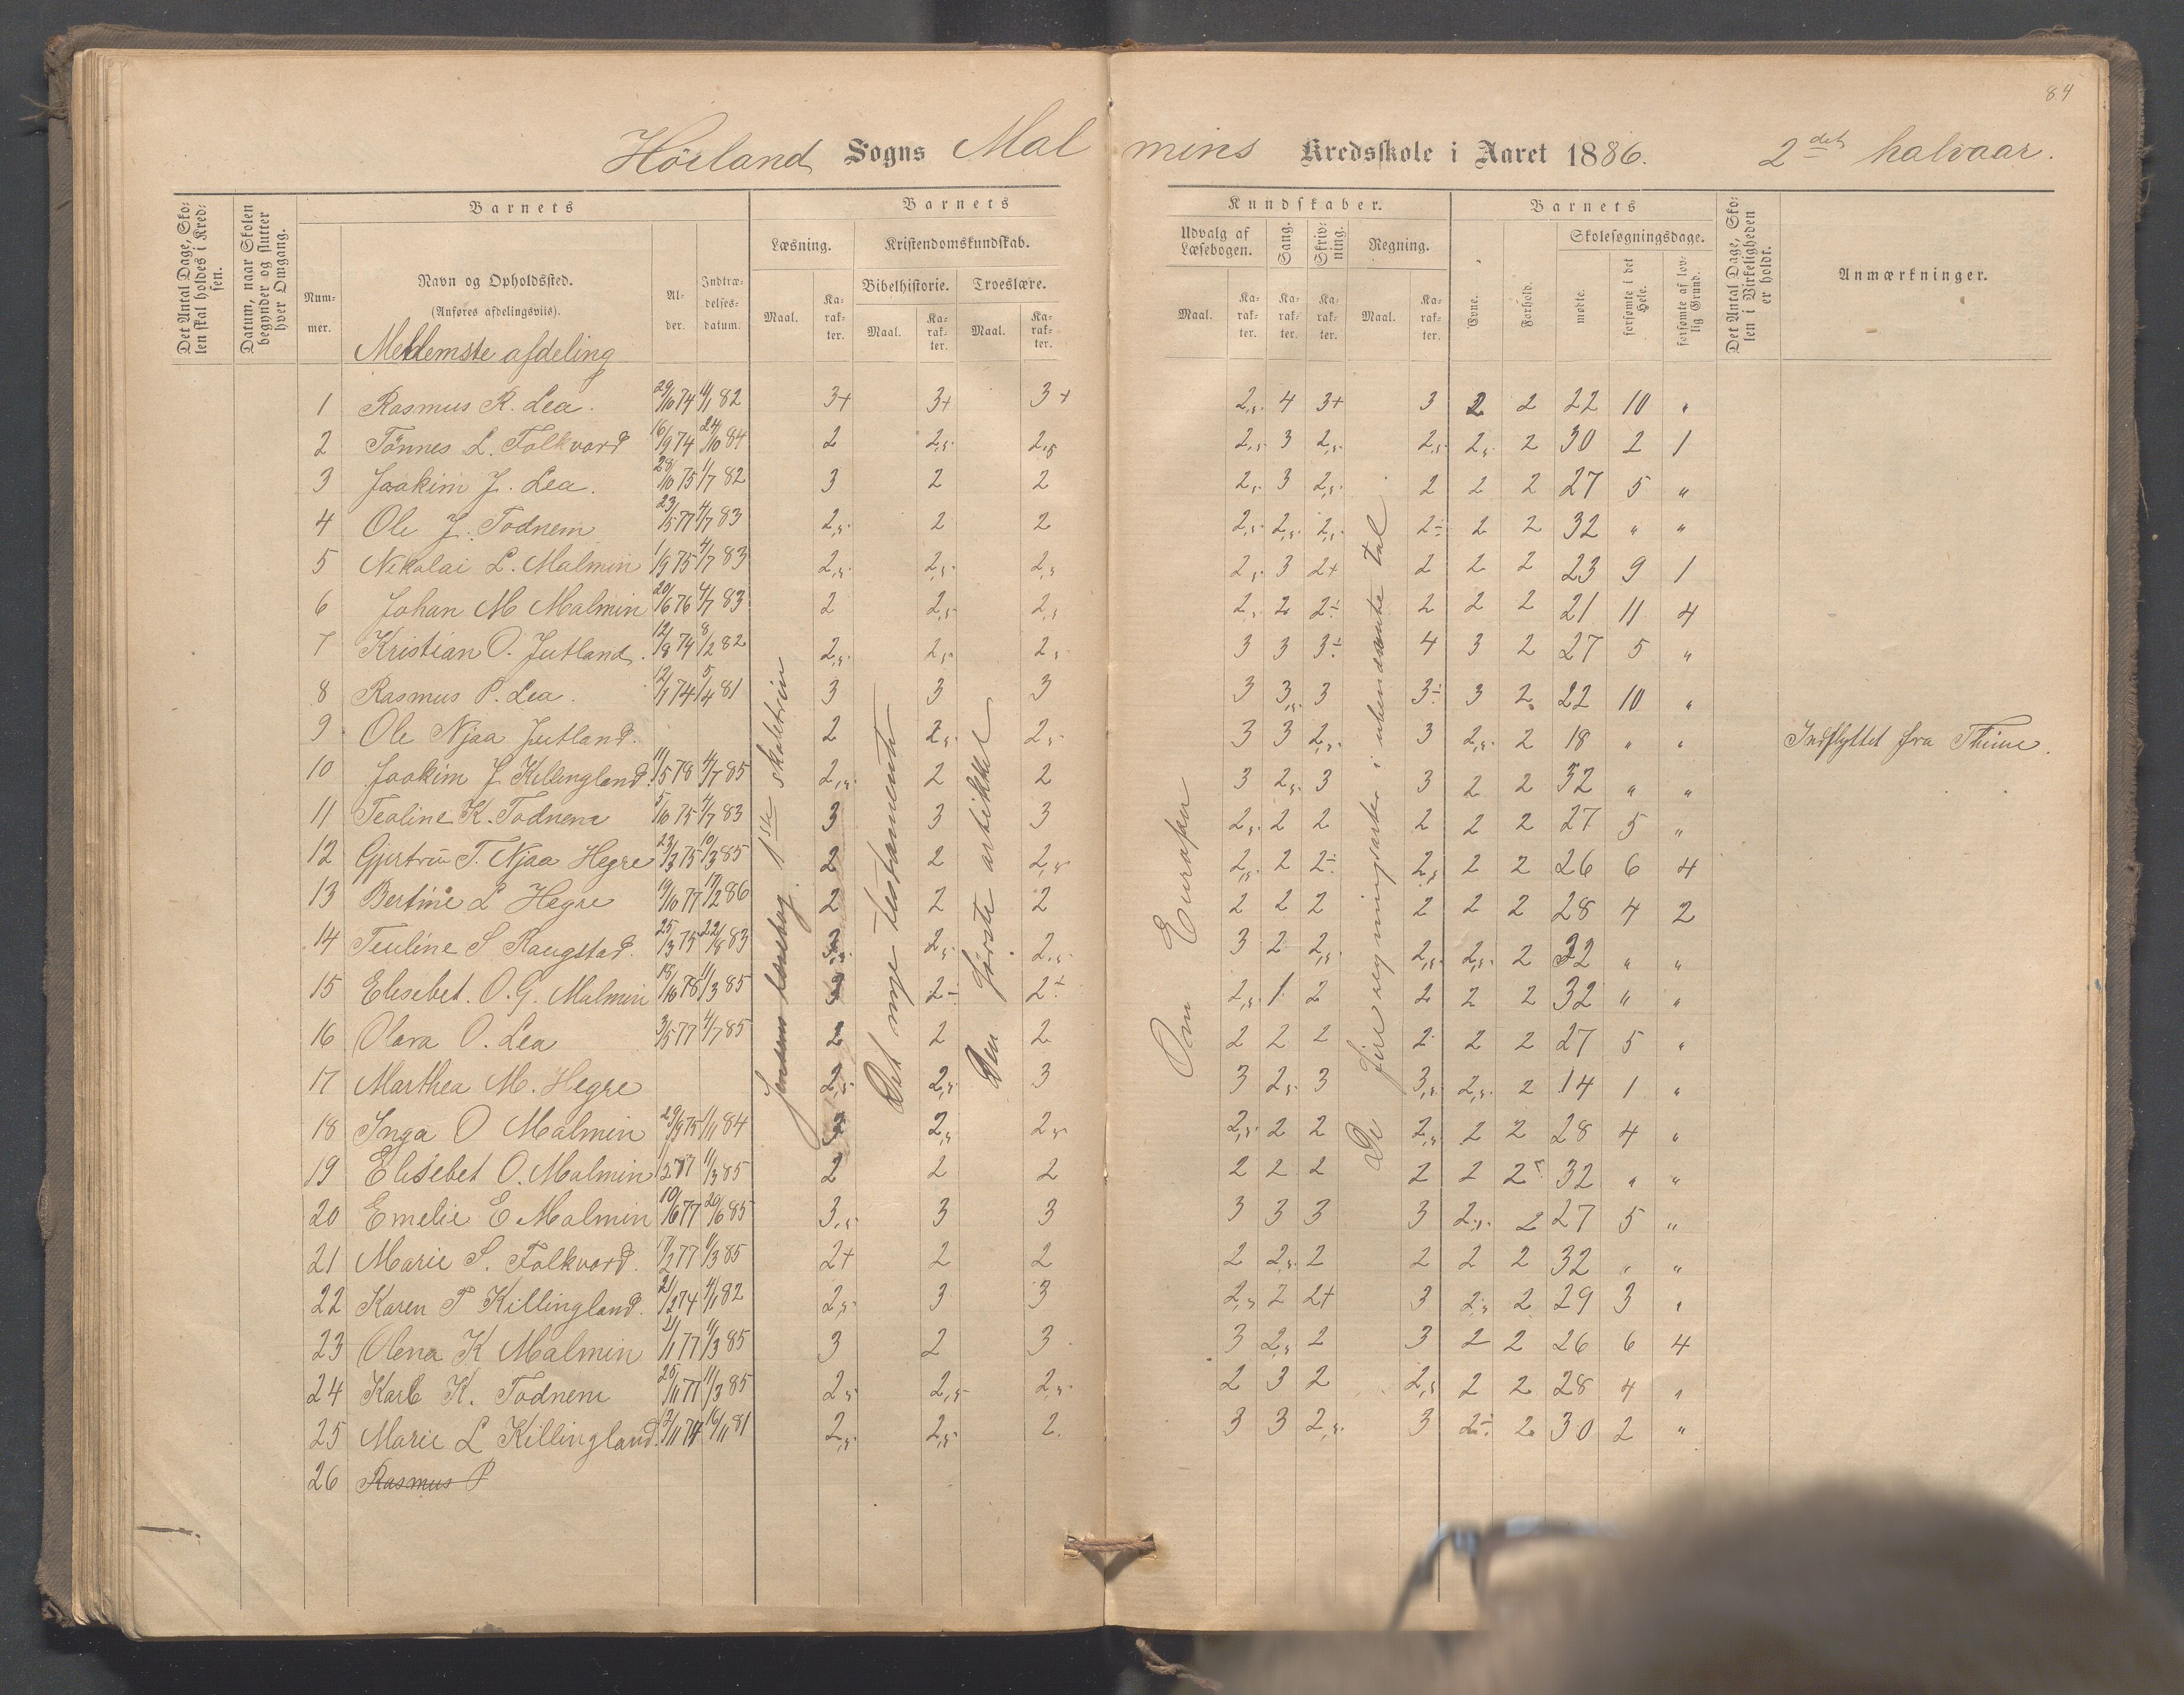 84
Höiland Sogns Malmins Kredsskole i Aaret 1886. 2det halvaar.
Det Antal Dage, Skolen skal holdes i Kredsen.
Datum, naar Skolen begynder og slutter hver Omgang.
Barnets
Nummer.
Navn og Opholdssted.
(Anføres afdelingsviis).
Alder.
Indtrædelsesdatum.
Barnets Kundskaber.
Læsning.
Maal. Karakter.
Kristendomskundskab.
Bibelhistorie. Troeslære.
Maal. Karakter. Maal. Karakter.
Udvalg af Læsebogen.
Maal. Karakter.
Sang. Karakter.
Skrivning. Karakter.
Regning.
Maal. Karakter.
Barnets
Evne. Forhold.
Skolesøgningsdage.
mødte. forsømte i det Hele. forsømte af lovlig Grund.
Det Antal Dage, Skolen i Virkeligheden er holdt.
Anmærkninger.
Mellemste afdeling
Jensens læsebog. 1ste skoletrin
Det nye testamente
Den første artikkel
Om Europa
De fire regningsarter i ubenævnte tal
1 Rasmus R. Lea. 29/10 74 11/1 82 3+ 3+ 3+ 2,5. 4 3+ 3 2 2 22 10 "
2 Tönnes L. Folkvord 16/9 74 24/10 84 2 2,5 2,5 2,5 3 2,5 2,5 2,5 2 30 2 1
3 Joakim J. Lea. 28/10 75 1/7 82 3 2 2 2,5 3 2,5 2 2 2 27 5 "
4 Ole J. Todnem 23/5 77 4/7 83 2,5 2 2 2,5 2,5 2,5 2÷ 2 2 32 " "
5 Nikolai L. Malmin 1/9 75 4/7 83 2,5 2,5 2,5 2,5 3 2+ 2 2 2 23 9 1
6 Johan M Malmin 20/6 76 4/7 83 2 2,5 2,5 2,5 2 2÷ 2 2 2 21 11 4
7 Kristian O. Jutland. 12/8 74 8/2 82 2,5 2,5 2,5 3 3 3÷ 4 3 2 27 5 "
8 Rasmus P. Lea. 12/1 74 5/4 81 3 3 3 3 3,5 3 3÷ 3 2 22 10 "
9 Ole Njaa Jutland. 2 2,5 2,5 3 3 2,5 3 2,5 2 18 " " Indflyttet fra Thime.
10 Joakim J. Killingland. 11/5 78 4/7 85 2,5 2 2 3 2,5 3 3 2 2 32 " "
11 Tealine K. Todnem 5/10 75 4/7 83 3 3 3 2,5 2 2 2 2 2 27 5 "
12 Gjertrui T. Njaa Hegre 23/3 75 10/3 85 2 2 2,5 2,5 2 2÷ 2,5 2 2 26 6 4
13 Bertine L Hegre 19/10 77 17/2 86 2 2 2 2 2 2 2 2 2 28 4 2
14 Teuline S Haugstad. 25/3 75 22/8 83 3,5 2,5 2,5 3 2 2,5 2,5 2,5 2 32 " "
15 Elisebet. O. G. Malmin 18/10 78 11/3 85 2÷ 2+ 2,5 1 2 2 2 2 32 " "
16 Olava O. Lea 3/5 77 4/7 85 2 2 2 2 2 2 2 2 2 27 5 "
17 Marthea M. Hegre 2,5 2,5 3 3 2,5 3 3,5 2,5 2 14 1 "
18 Inga O Malmin 29/9 75 1/11 84 2,5 2,5 2,5 2 2 2,5 2 2 28 4 "
19 Elisebet O. Malmin 11/3 85 2 2 2 2 2 2 2 2 2 32 " "
20 Emelie E Malmin 10/6 77 20/6 85 3,5 3 3 3 3 3 3 2,5 2 27 5 "
21 Marie S. Folkvord. 7/2 77 11/3 85 2+ 2 2 2 2,5 2 2 2 2 32 " "
22 Karen P Killingland. 21/2 74 4/1 82 2,5 3 3 2,5 2 2+ 3 2,5 2 29 3 "
23 Olena K Malmin 21/1 77 11/3 85 3 2 3 3 2,5 2 3 2 2 26 6 4
24 Karl K. Todnem 25/11 77 11/3 85 2,5 2,5 2,5 2 3 2 2,5 2 2 28 4 "
25 Marie L Killingland. 12/11 74 16/11 81 2,5 2,5 2. 3 3 2,5 3 2÷ 2 30 2 "
26 Rasmus P